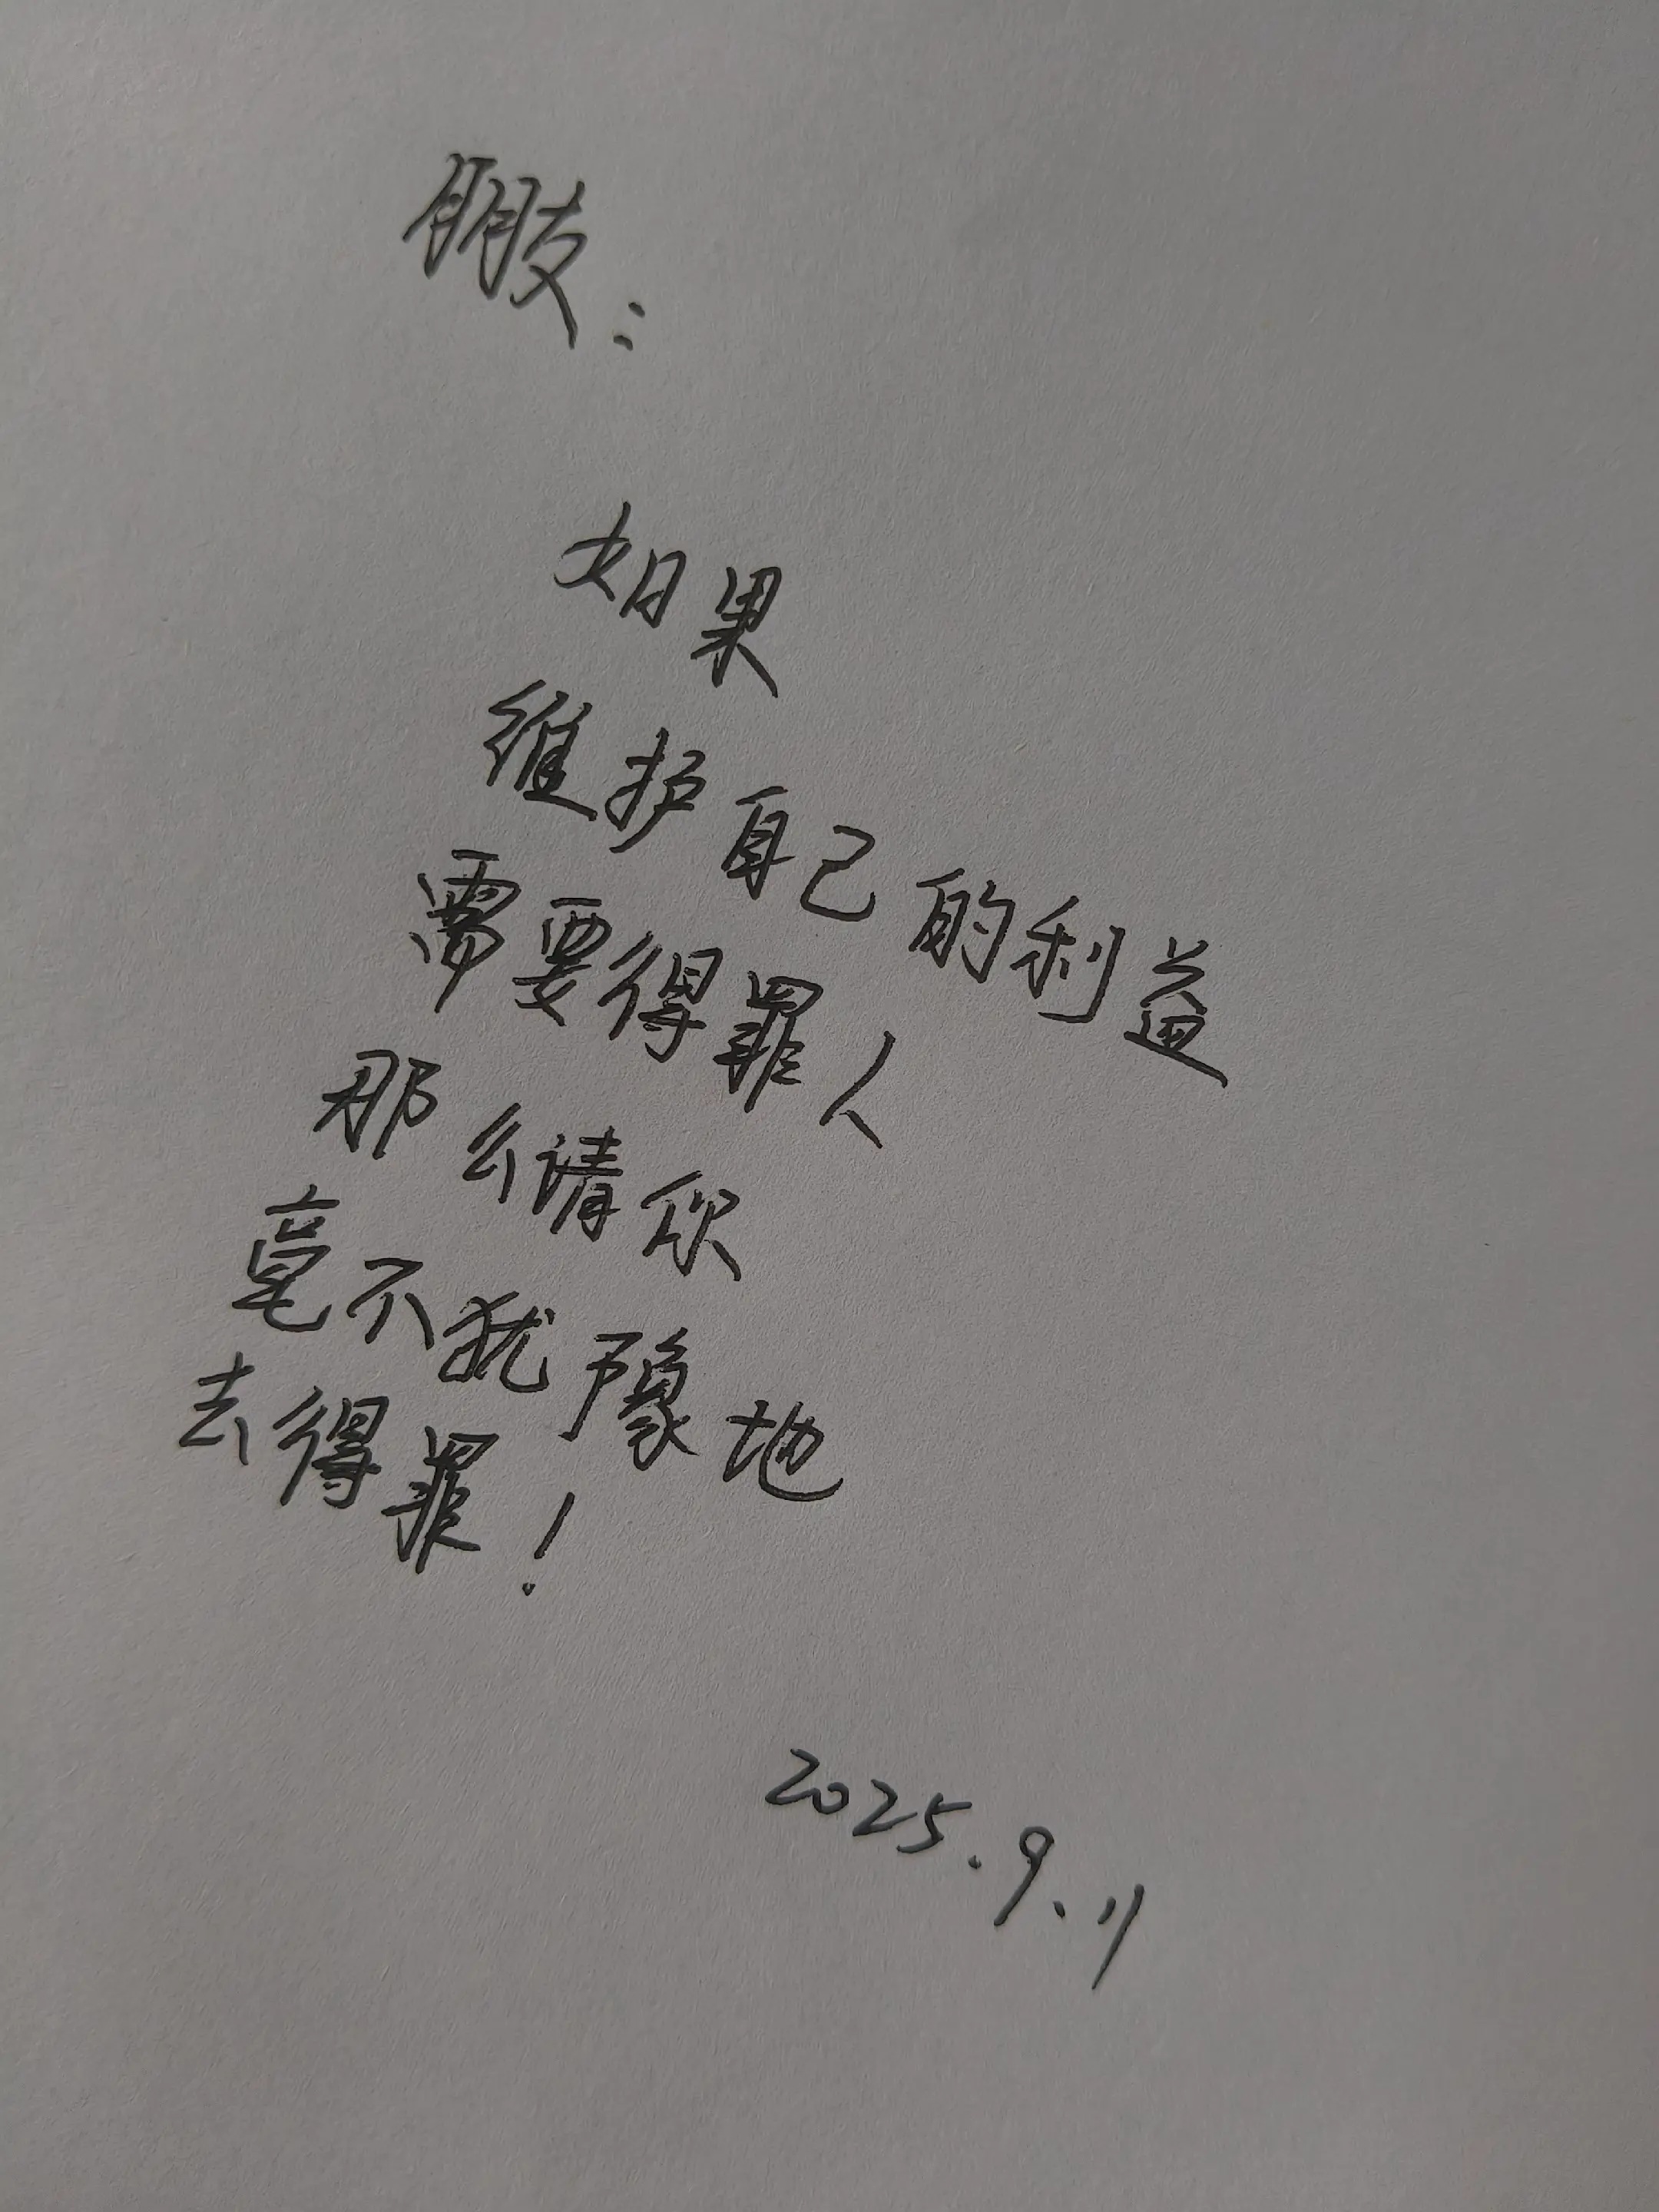 朋友：
如果
维护自己的利益
需要得罪人
那么请你
毫不犹豫地
去得罪！
2025.9.11